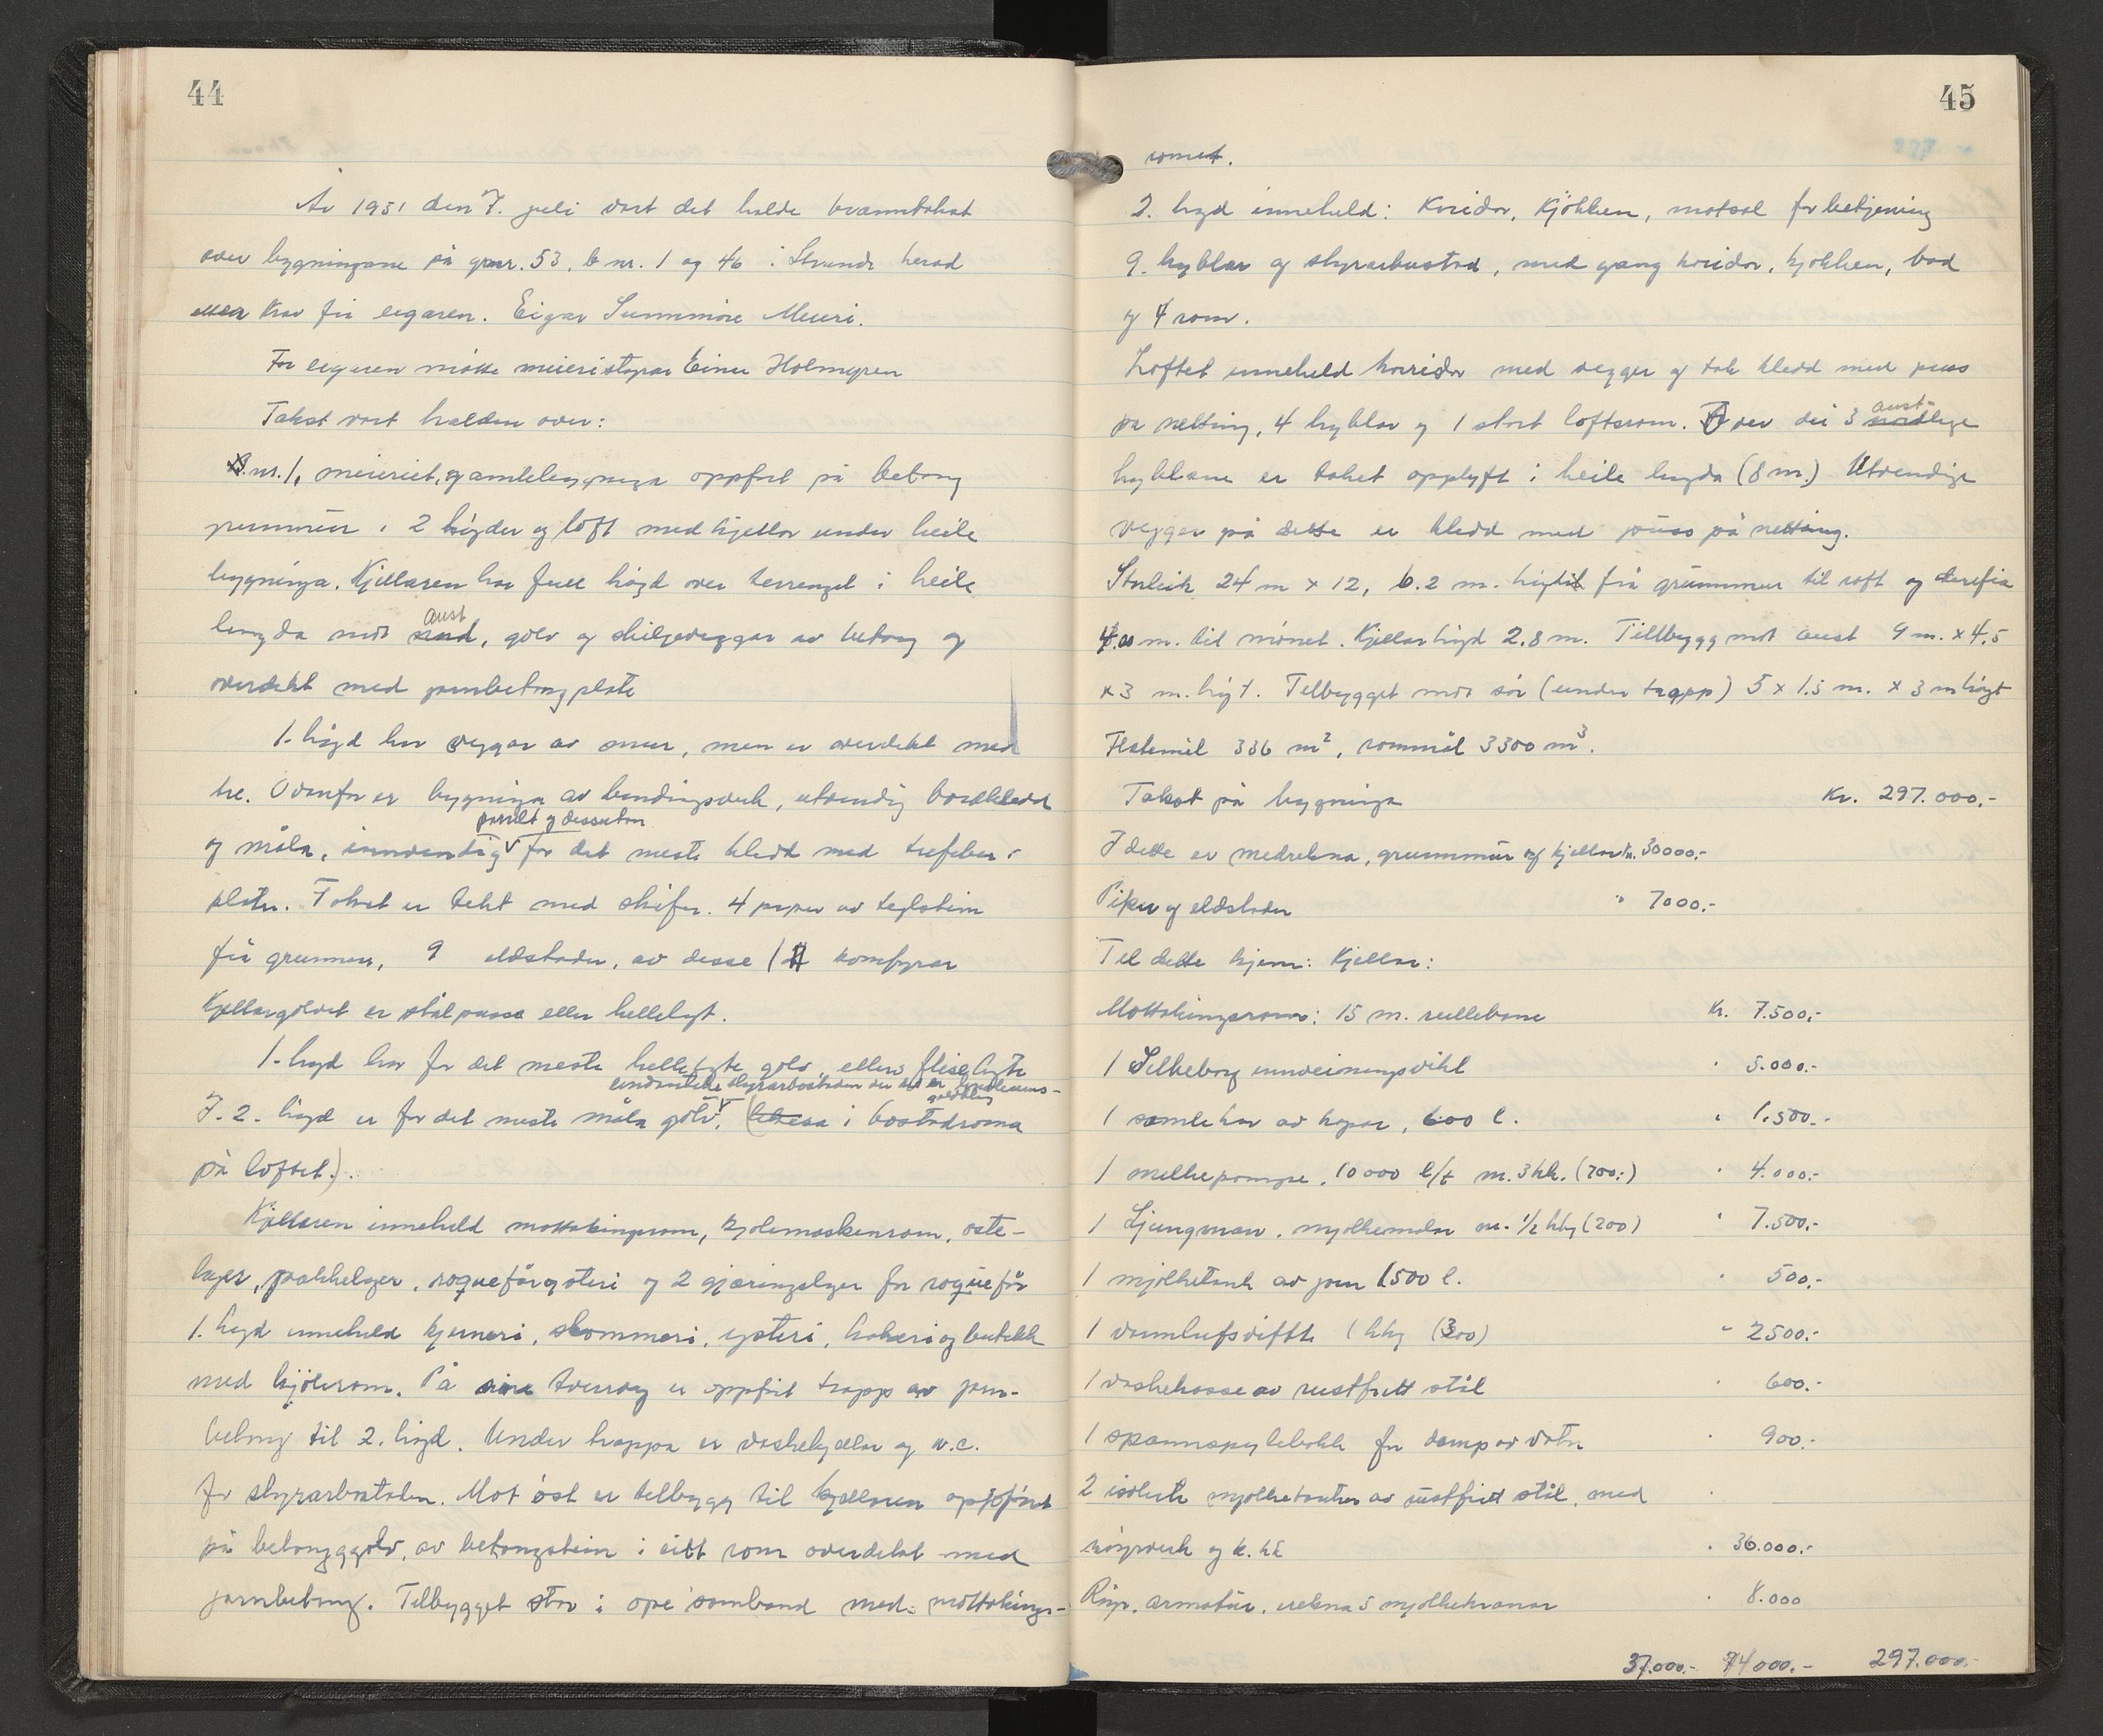 44
År 1951 den 7. juli vart det halde branntakst
over bygningane på gnr. 53, b nr. 1 og 46 i Strands herad
etter krav frå eigaren. Eigar Sunnmøre Meieri.
For eigaren møtte meieristyrar Einar Holmgren
Takst vart halden over:
nr. 1, meieriet, gamlebygninga oppført på betong
grunnmur i 2 høgder og loft med kjellar under heile
bygninga. Kjellaren har full høgd over terrenget i heile
lengda mot aust, golv og skiljeveggar av betong og
overdekt med jarnbetongplate
1. høgd har veggar av mur, men er overdekt med
tre. Ovanfor er bygninga av bindingsverk, utvendig bordkledd
og måla, innvendig panelt og dessutan for det meste kledd med trefiber-
plater. Taket er tekt med skifer. 4 piper av teglstein
frå grunnen, 9 eldstader, av desse komfyrar
Kjellargolvet er stålpussa eller hellelagt.
1. høgd har for det meste hellelagte golv, ellers fliselagte
I 2. høgd er for det meste måla golv, unntatt styrarbustaden der det er linoleums-
golvbelegg (likesa i bustadroma
på loftet).
Kjellaren inneheld mottakingsrom, kjølemaskenrom, oste-
lager, pakkelager, roqueførysteri og 2 gjæringslager for roquefôr
1. høgd inneheld kjerneri, skommeri, ysteri, kokeri og butikk
med kjølerom. På tverrveg er oppført trapp av jarn-
betong til 2. høgd. Under trappa er vaskekjellar og w.c.
for styrarbustaden. Mot øst er tilbygg til kjellaren oppført
på betonggolv, av betongstein i eitt rom overdekt med
jarnbetong. Tilbygget står i ope samband med mottakings-
45
romet.
2. høgd inneheld: Koridor, Kjøkken, matsal for betjening
9. hyblar og styrarbustad, med gang koridor, kjøkken, bad
og 4 rom.
Loftet inneheld korridor med vegger og tak kledd med puss
på netting, 4 hyblar og 1 stort loftsrom. Over dei 3 austlege
hyblane er taket opplyft i heile lengda (8 m.) Utvendige
vegger på dette er kledd med puss på netting.
Storleik 24 m x 12, 6.2 m. høgd frå grunnmur til raft og derifrå
m. til mønet. Kjellarhøgd 2.8 m. Tillbygg mot aust 9 m. x 4.5
x 3 m. høgt. Tilbygget mot sør (under trapp) 5 x 1.5 m. x 3 m høgt
Flatemål 336 m², rommål 3300 m³.
Takst på bygninga Kr. 297.000,-
I dette er medrekna, grunnmur og kjellar Kr. 30000,-
Piper og eldstader " 7000,-
Til dette kjem: Kjellar:
Mottakingsrom: 15 m. rullebane Kr. 7.500,-
1 Silkeborg innveiningsvekt " 5.000,-
1 samlekar av kopar, 600 l. " 1.500,-
1 melkepumpe, 10000 l/t m. 3 hk. (700:) " 4.000,-
1 Ljungman, mjølkemålar m. 1/2 hkg (200) " 7.500,-
1 mjølketank av jarn 1500 l. " 500,-
1 varmluftsvifte 1 hkg (300) " 2500,-
1 vaskekasse av rustfritt stål " 600,-
1 spannspylebokk for damp og vatn " 900,-
2 isolerte mjølketanker av rustfritt stål, med "
rørverk og el. hk " 36.000,-
Røyr, armatur, irekna 5 mjølkekranar " 8.000
37.000,- 74000,- 297.000,-